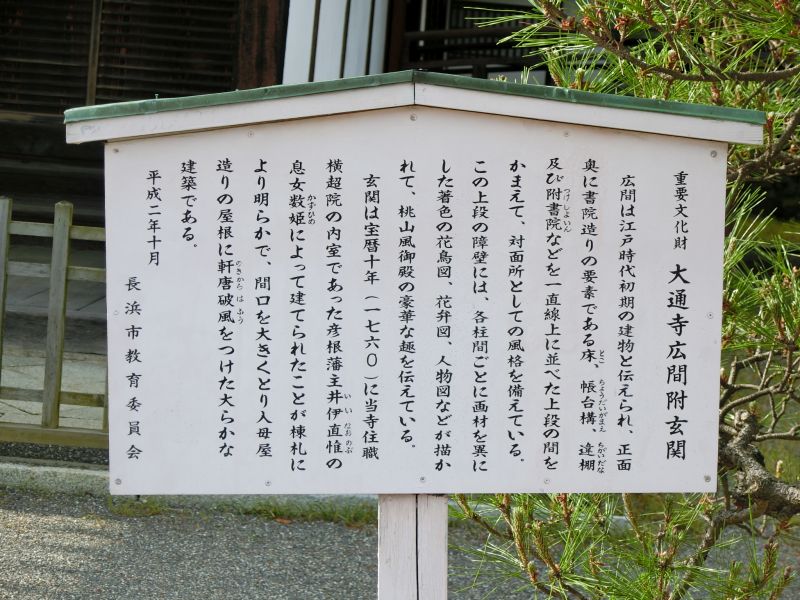 重要文化財 大通寺広間附玄関
広間は江戸時代初期の建物と伝えられ、正面
奥に書院造りの要素である床、帳台構、違棚
とこ ちょうだいがまえ ちがいだな
及び附書院などを一直線上に並べた上段の間を
つけしょいん
かまえて、対面所としての風格を備えている。
この上段の障壁には、各柱間ごとに画材を異に
した着色の花鳥図、花弁図、人物図などが描か
れて、桃山風御殿の豪華な趣を伝えている。
玄関は宝暦十年（一七六〇）に当寺住職
横超院の内室であった彦根藩主井伊直惟の
いい なおのぶ
息女数姫によって建てられたことが棟札に
かずひめ
より明らかで、間口を大きくとり入母屋
造りの屋根に軒唐破風をつけた大らかな
のきからはふう
建築である。
平成二年十月
長浜市教育委員会